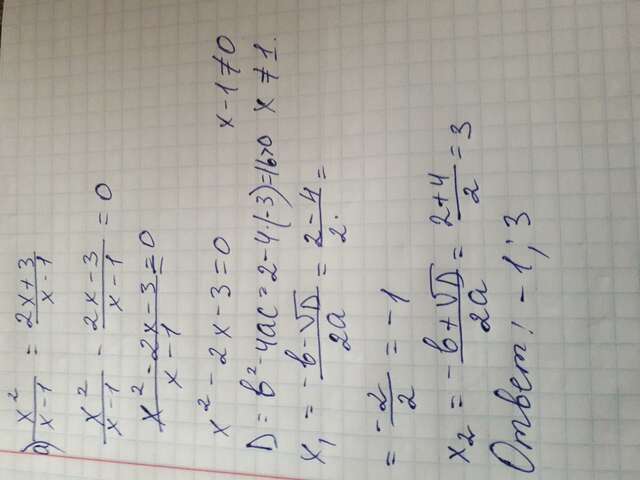 а) x²/(x-1) = (2x+3)/(x-1)
x²/(x-1) - (2x-3)/(x-1) = 0
(x²-2x-3)/(x-1) = 0
x² - 2x - 3 = 0 x-1≠0
D = b² - 4ac = 2-4·(-3) = 16>0 x≠1.
x₁ = (-b-√D)/2a = (2-4)/2. =
= -2/2 = -1
x₂ = (-b+√D)/2a = (2+4)/2 = 3
Ответ: -1; 3